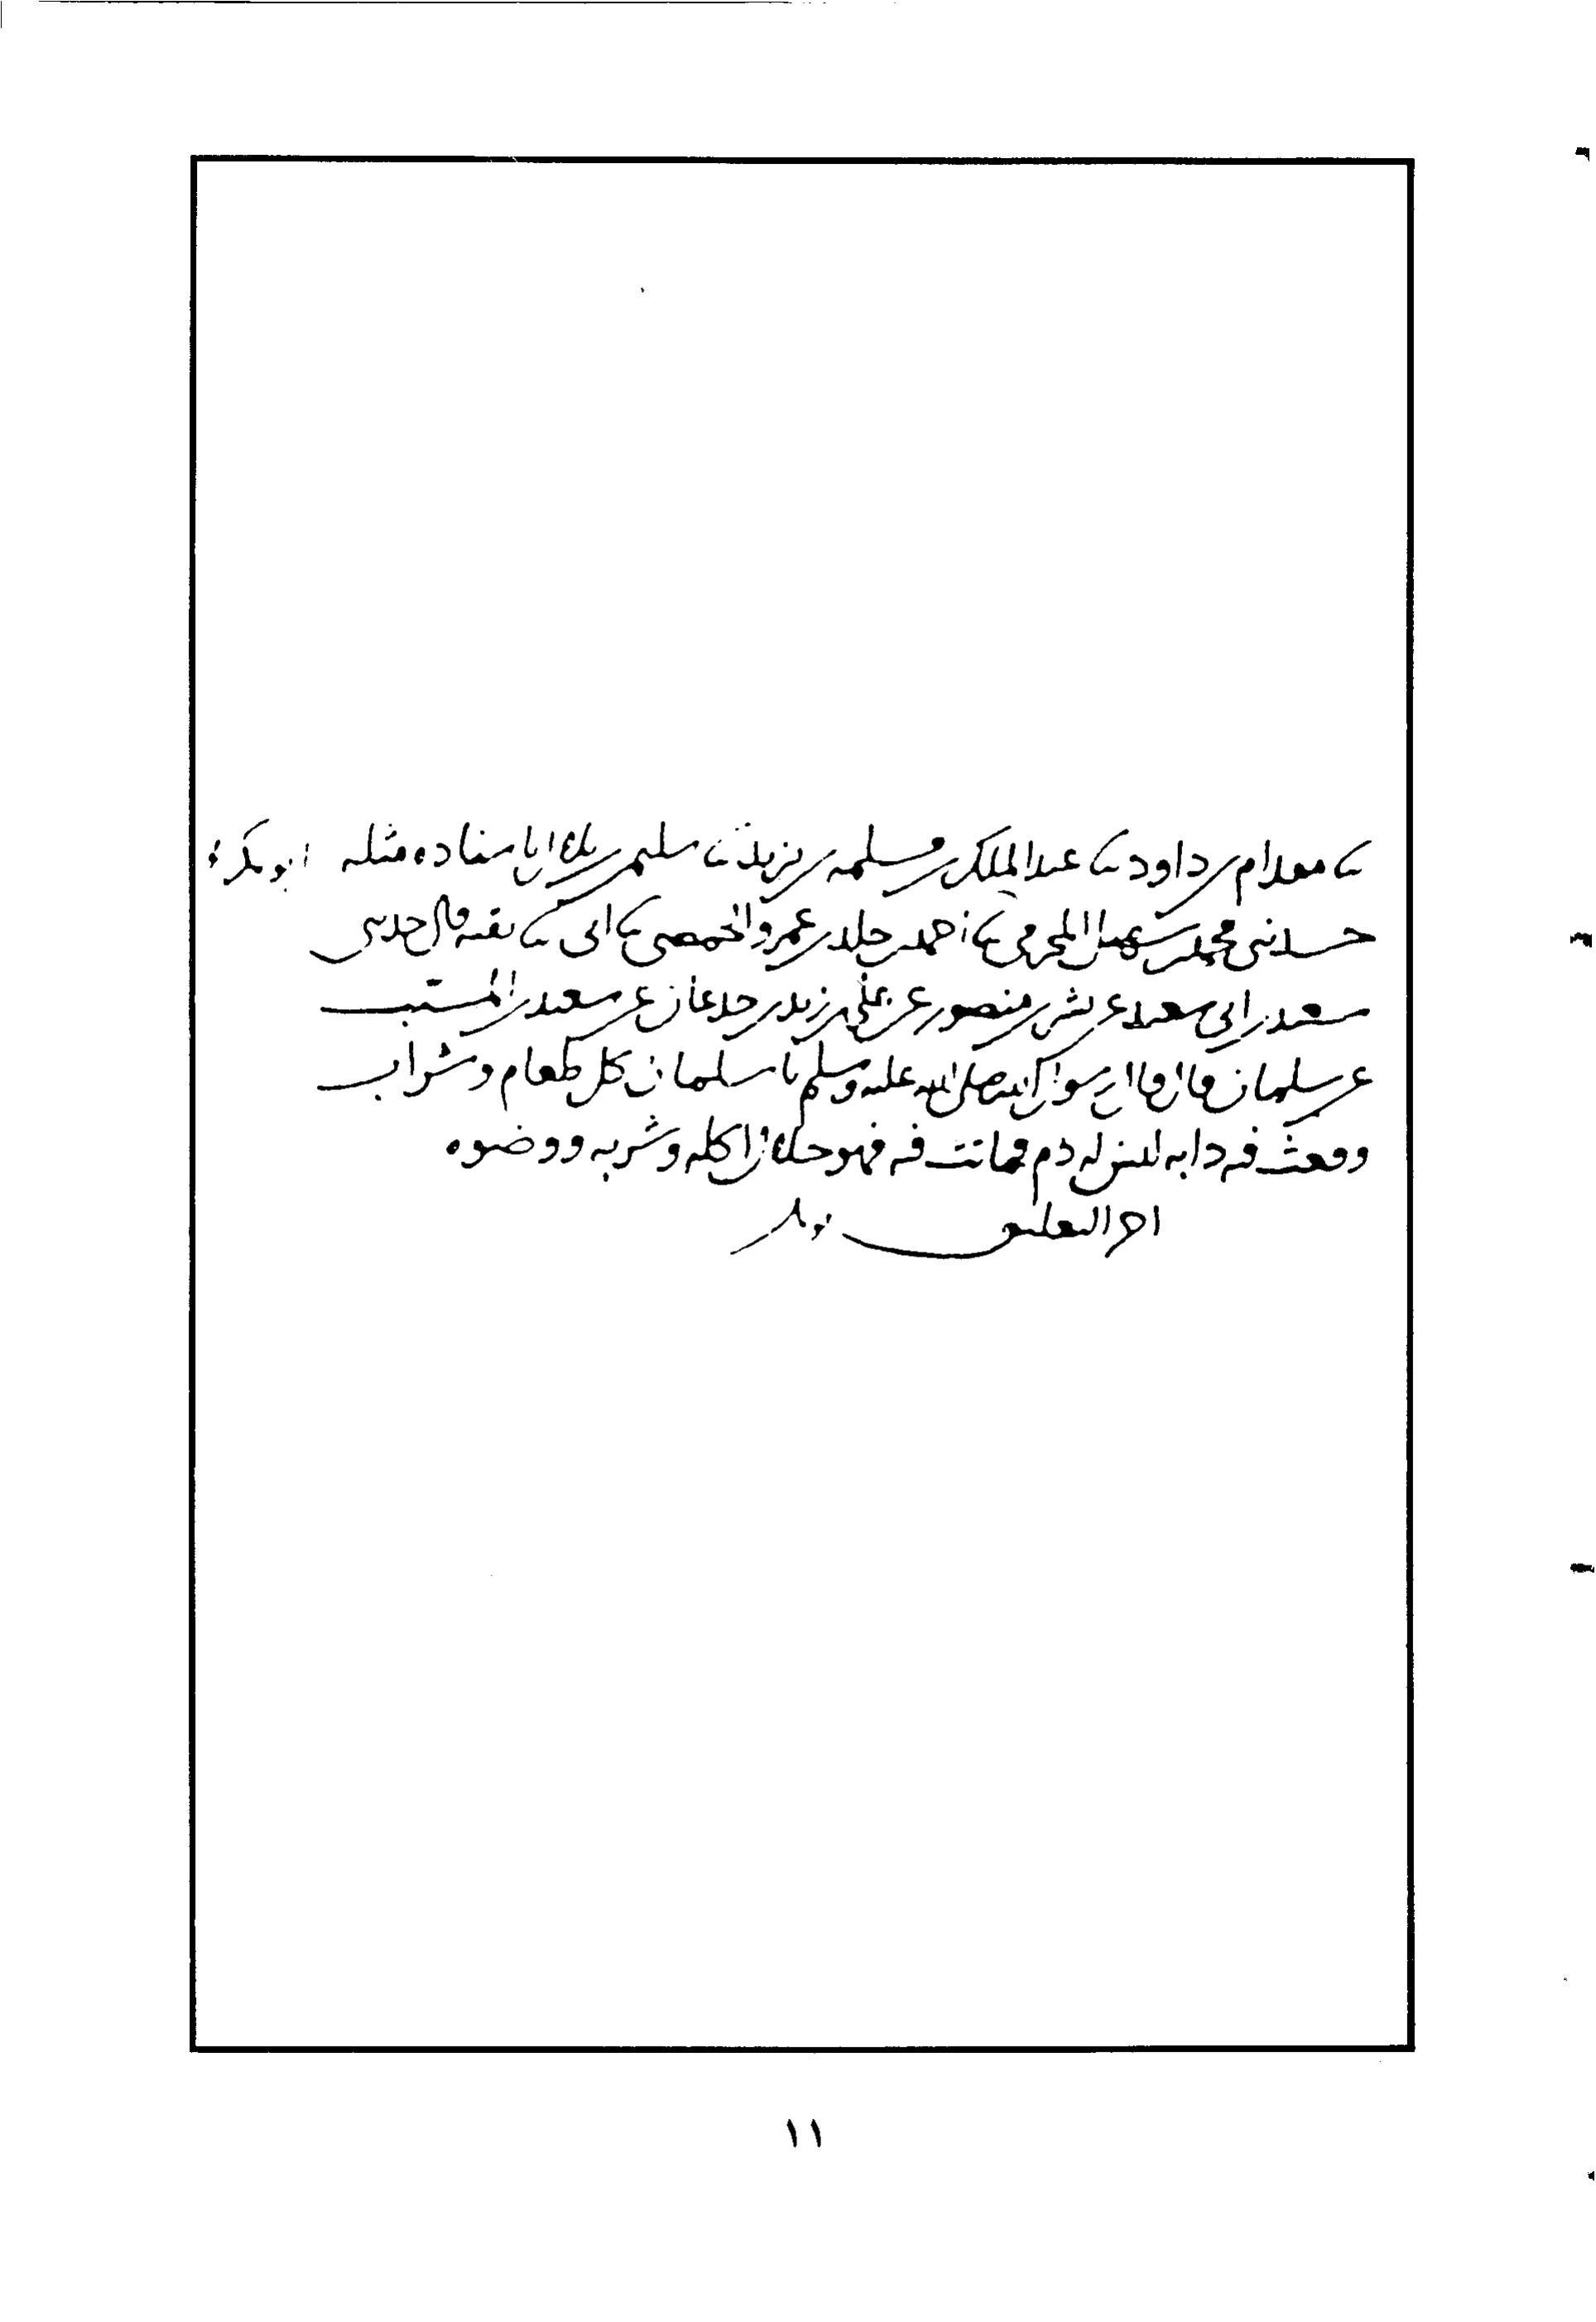 ثنا مقدام بن داود ثنا عبد الملك بن مسلمة بن يزيد ثنا سليم بن بلال باسناده مثله ابو بكر
حدثني محمد بن سهيل ثنا احمد بن خالد بن عمرو الحمصي ثنا ابي ثنا بقية قال حدثني
سعيد بن ابي سعيد عن بشر بن منصور عن علي بن زيد بن جدعان عن سعيد بن المسيب
عن سلمان قال قال رسول الله صلى الله عليه وسلم يا سلمان كل طعام وشراب
وقعت فيه دابه ليس له دم فماتت فيه فهو حلال اكله وشربه ووضوه
اخر التعليق
١١